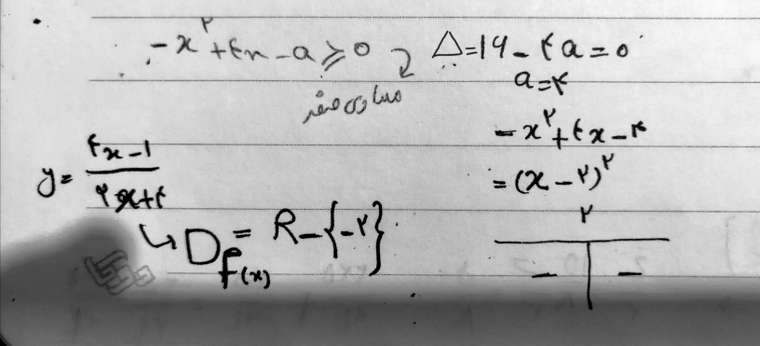 -x² + ۴x - a ⩾ ۰
مساوی صفر
Δ = ۱۶ - ۴a = ۰
a = ۴
-x² + ۴x - ۴
= (x - ۲)²
۲
- | -
y = (۴x - ۱) / (۲x + ۴)
D f(x) = R - {-۲}